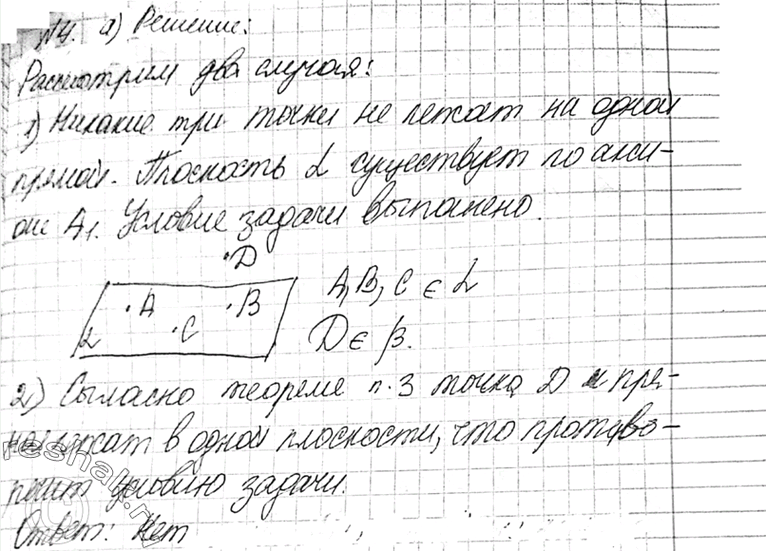 №4. а) Решение:
Рассмотрим два случая:
1) Никакие три точки не лежат на одной
прямой. Плоскость α существует по акси-
оме А₁. Условие задачи выполнено.
D
A B
C
α
A, B, C ∈ α
D ∈ β.
2) Согласно теореме п.3 точка D и пря-
лежат в одной плоскости, что противо-
условию задачи.
Ответ: Нет
reshak.ru